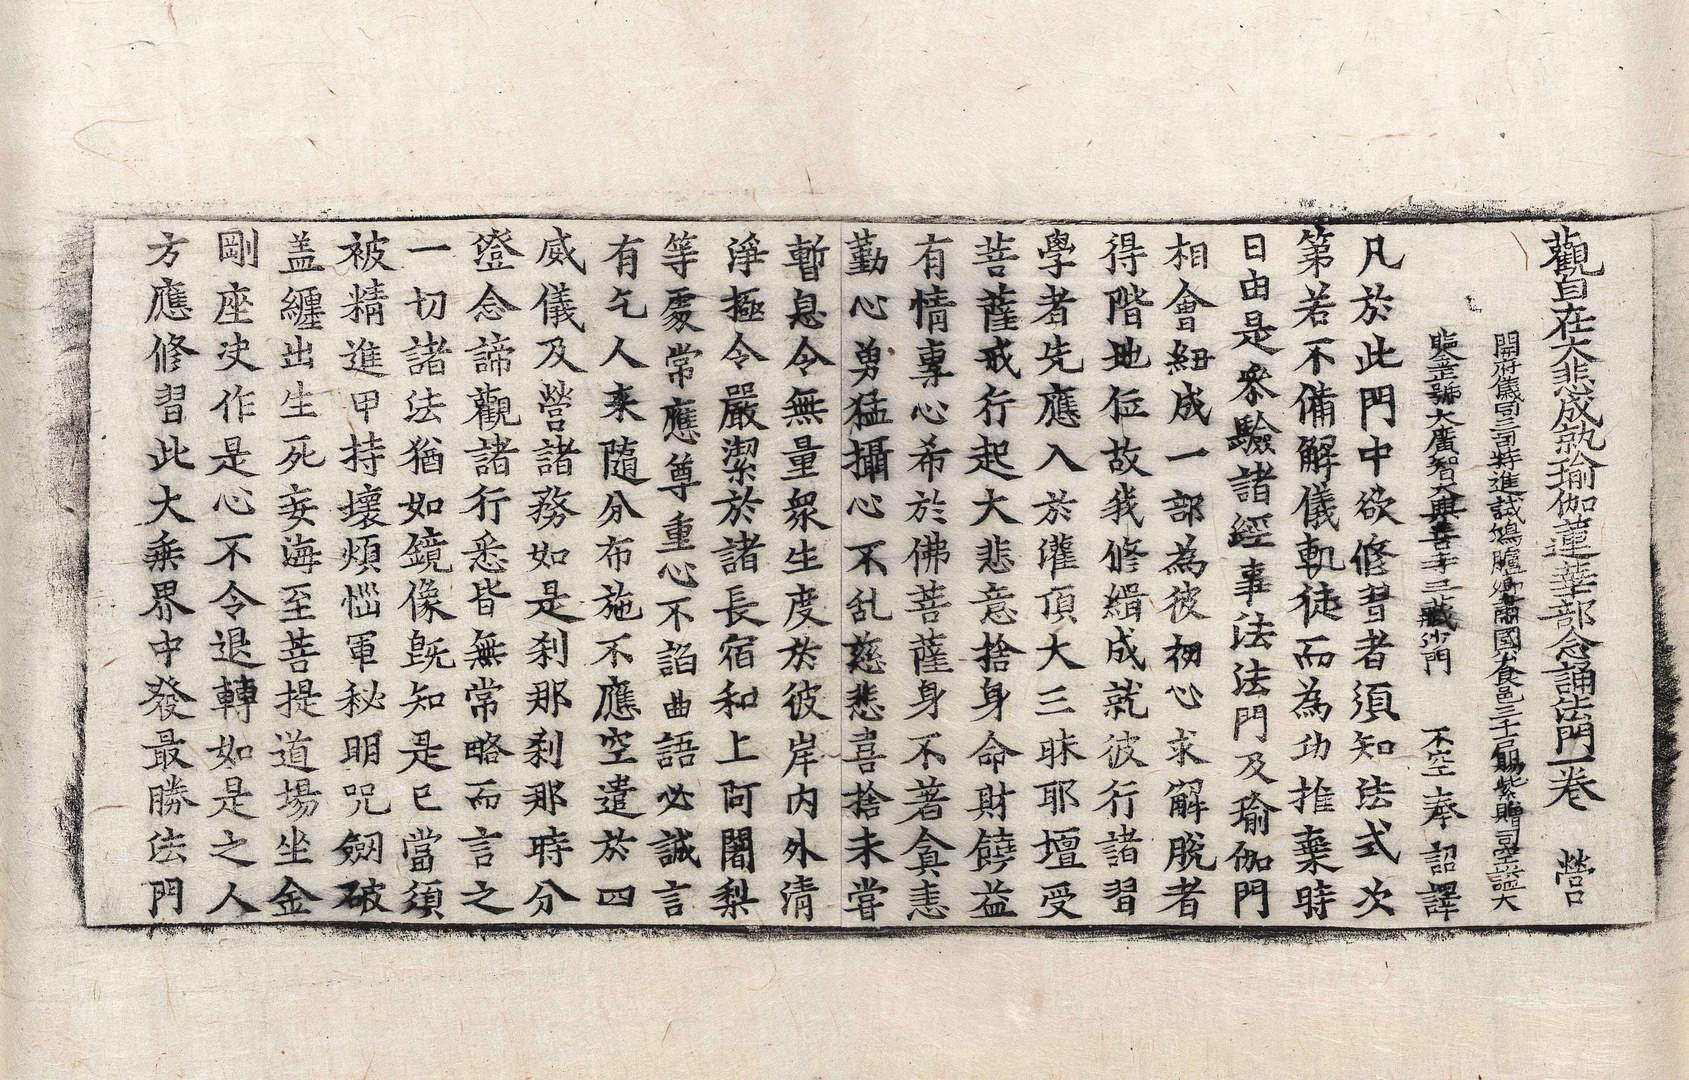 觀自在大悲成就瑜伽蓮華部念誦法門一卷　營
開府儀同三司特進試鴻臚卿肅國公食邑三千户賜紫贈司空謚大
鑒正號大廣智大興善寺三藏沙門　不空奉詔譯
凡於此門中欲修習者須知法式次
第若不備解儀軌徒而為功推棄時
日由是叅驗諸經事法法門及瑜伽門
相會紐成一部為彼初心求解脫者
得階地位故我修緝成就彼行諸習
學者先應入於灌頂大三昧耶壇受
菩薩戒行起大悲意捨身命財饒益
有情專心希於佛菩薩身不著貪恚
勤心勇猛攝心不乱慈悲喜捨未嘗
暫息令無量衆生度於彼岸内外清
淨極令嚴潔於諸長宿和上阿闍梨
等處常應尊重心不諂曲語必誠言
有乞人来隨分布施不應空遣於四
威儀及營諸務如是刹那刹那時分
澄念諦觀諸行悉皆無常略而言之
一切諸法猶如鏡像旣知是已當須
被精進甲持壞煩惱軍秘明咒劒破
盖纏出生死妄海至菩提道場坐金
剛座决作是心不令退轉如是之人
方應修習此大乗界中發最勝法門